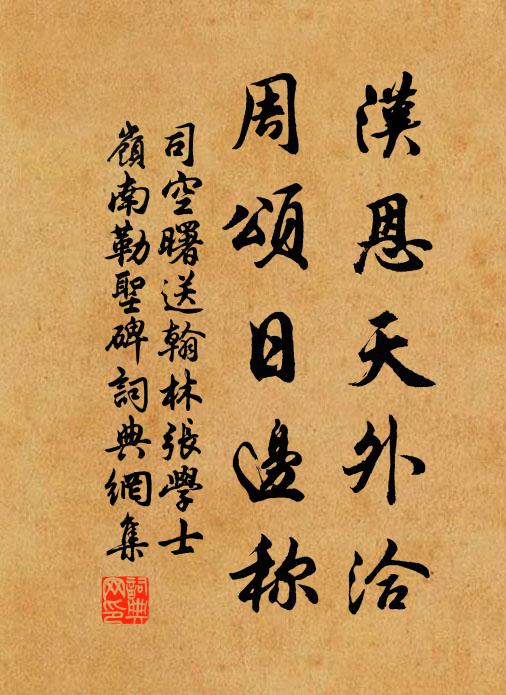 漢恩天外洽
周頌日邊称
司空曙送翰林張學士
嶺南勒聖碑詞典網集
詞典網印